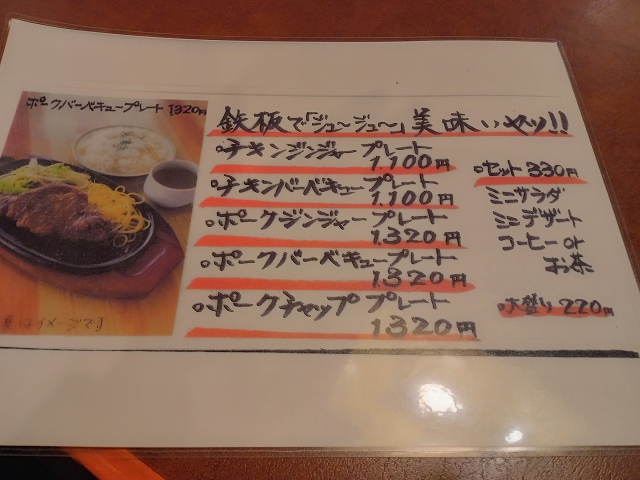 ポークバーベキュープレート 1320円
鉄板で「ジュ～ジュ～」美味いヤツ!!
チキンジンジャープレート
1,100円
チキンバーベキュープレート
1,100円
ポークジンジャープレート
1,320円
ポークバーベキュープレート
1,320円
ポークチャッププレート
1320円
セット 330円
ミニサラダ
ミニデザート
コーヒー or
お茶
大盛り 220円
はイメージです